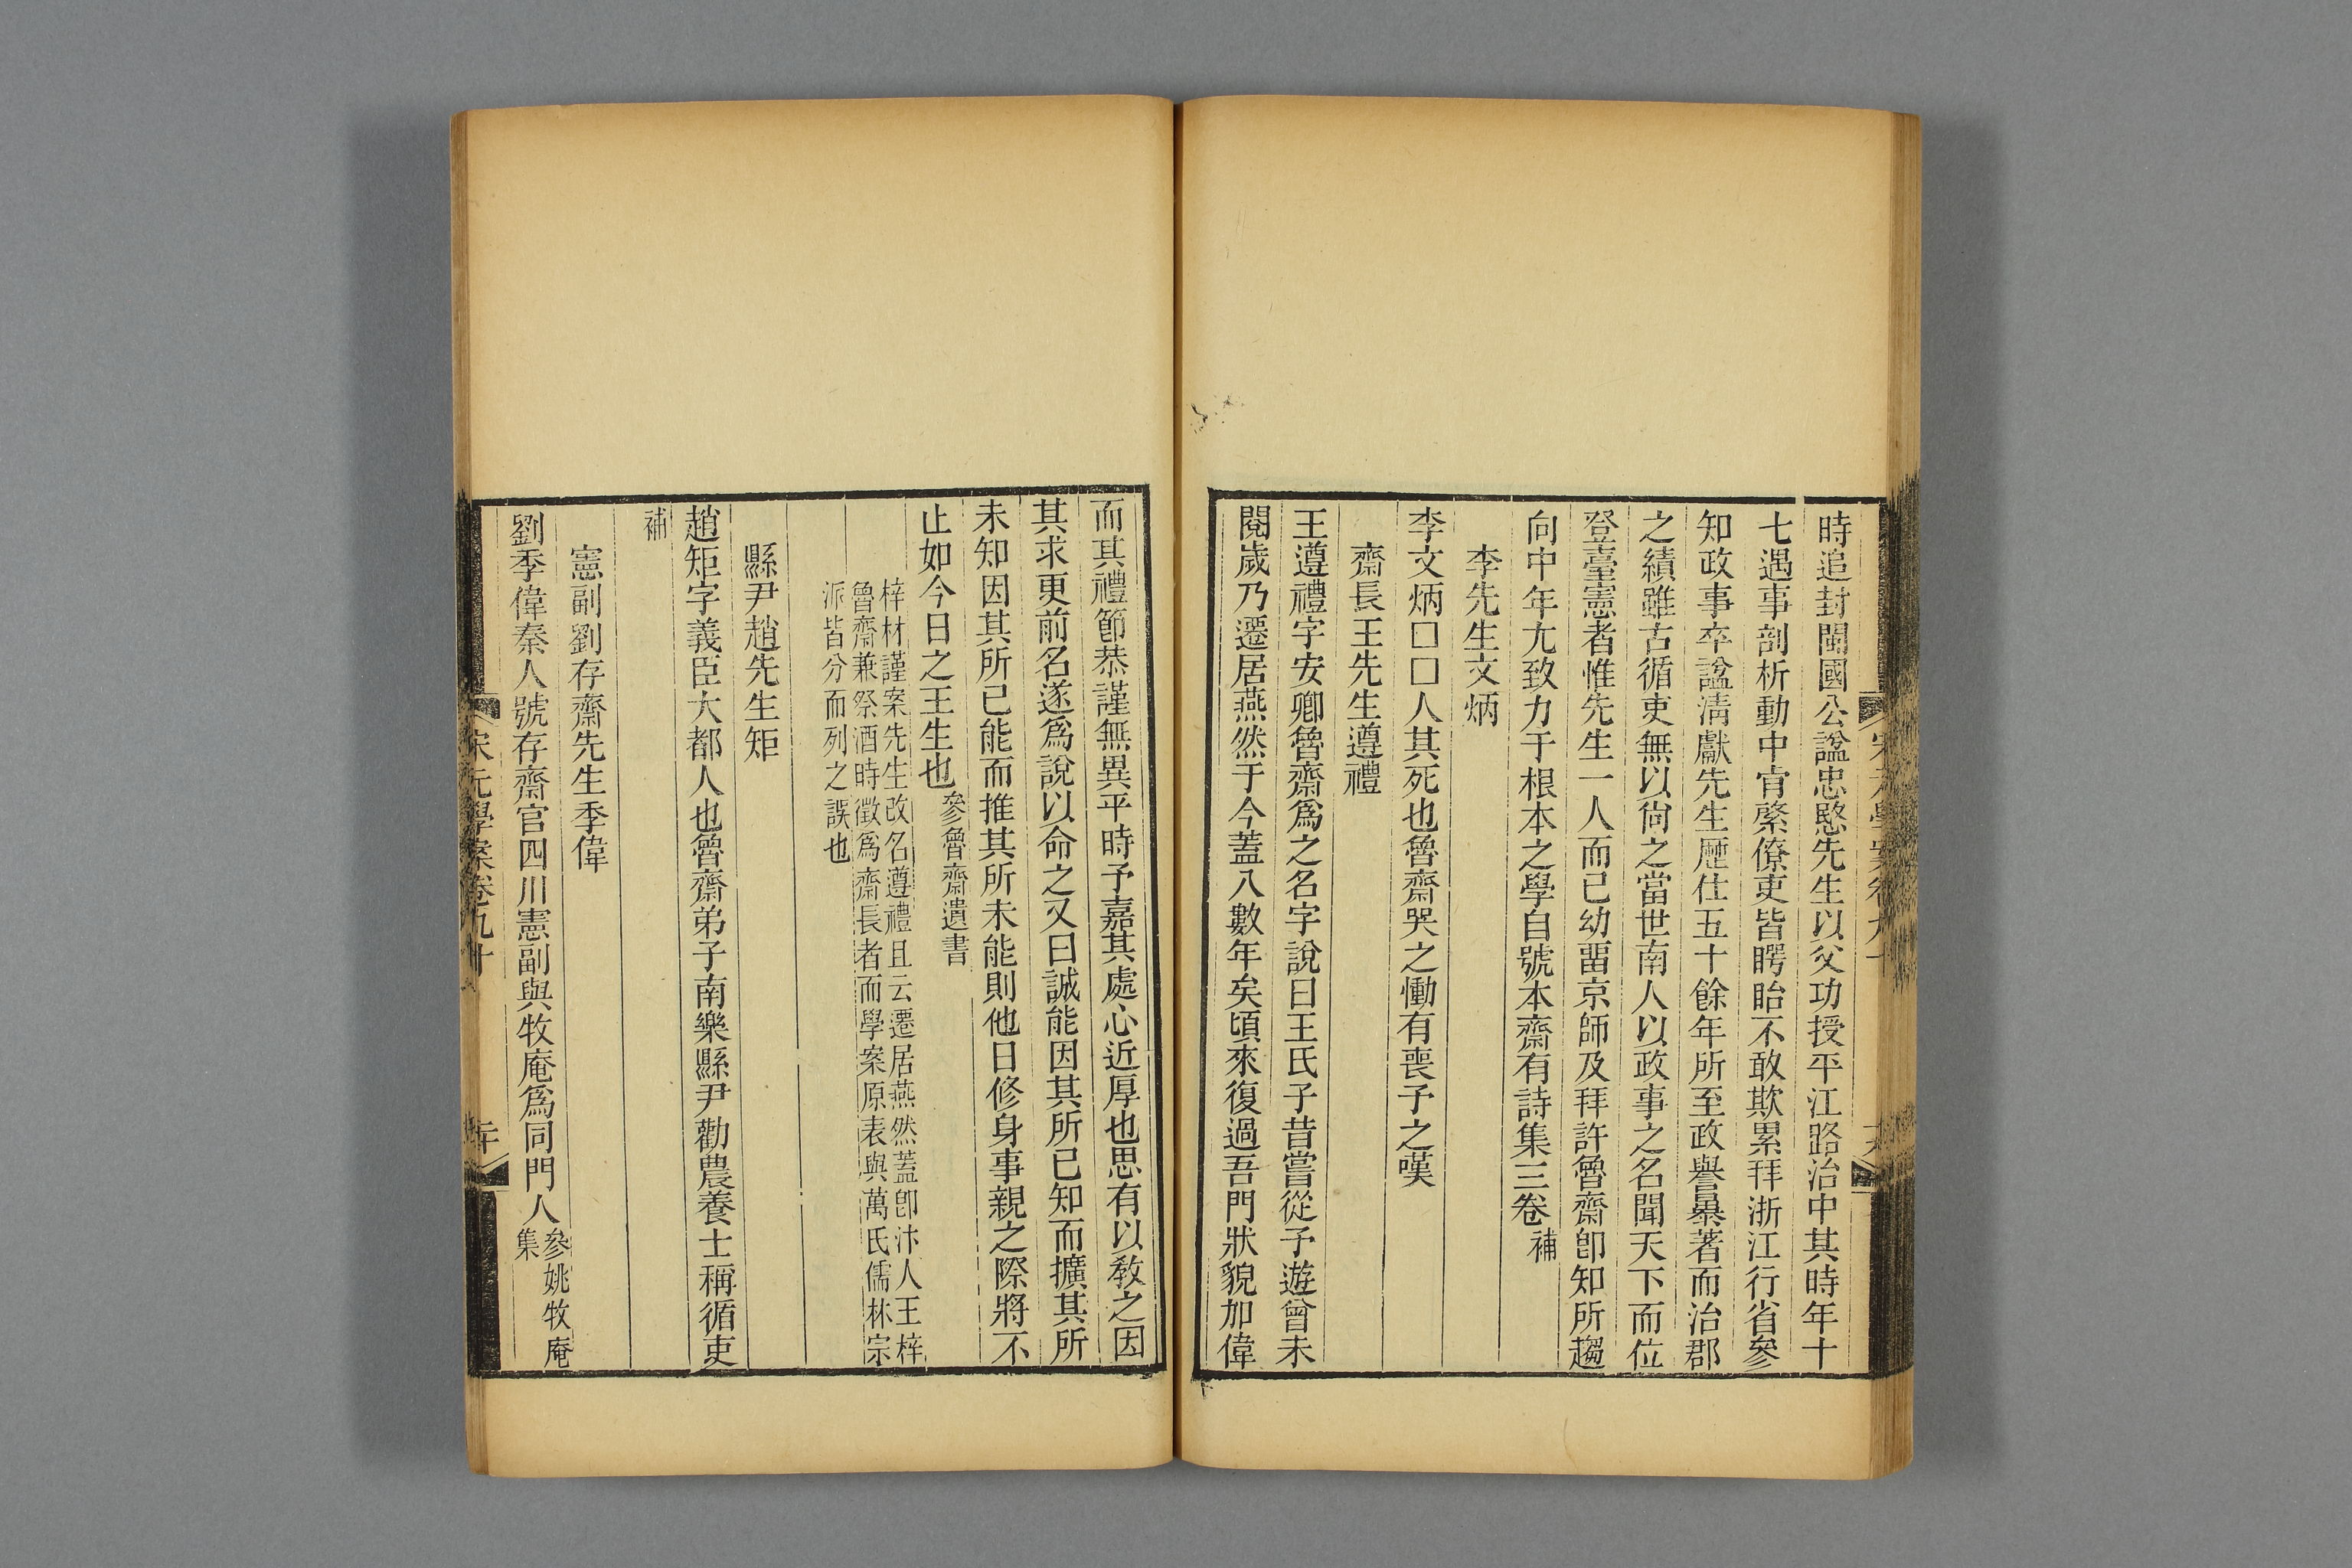 時追封閩國公諡忠愍先生以父功授平江路治中其時年十
七遇事剖析動中肯綮僚吏皆瞠眙不敢欺累拜浙江行省參
知政事卒諡淸獻先生歷仕五十餘年所至政譽㬥著而治郡
之績雖古循吏無以尙之當世南人以政事之名聞天下而位
登臺憲者惟先生一人而已幼畱京師及拜許魯齋卽知所趨
向中年尤致力于根本之學自號本齋有詩集三卷補
李先生文炳
李文炳□□人其死也魯齋哭之慟有喪予之嘆
齋長王先生遵禮
王遵禮字安卿魯齋爲之名字說曰王氏子昔嘗從予遊曾未
閱歲乃遷居燕然于今蓋八數年矣頃來復過吾門狀貌加偉
而其禮節恭謹無異平時予嘉其處心近厚也思有以敎之因
其求更前名遂爲說以命之又曰誠能因其所已知而擴其所
未知因其所已能而推其所未能則他日修身事親之際將不
止如今日之王生也參魯齋遺書
梓材謹案先生改名遵禮且云遷居燕然蓋卽汴人王梓
魯齋兼祭酒時徵爲齋長者而學案原表與萬氏儒林宗
派皆分而列之誤也
縣尹趙先生矩
趙矩字義臣大都人也魯齋弟子南樂縣尹勸農養士稱循吏
補
憲副劉存齋先生季偉
劉季偉秦人號存齋官四川憲副與牧庵爲同門人參姚牧庵
集
宋元學案卷九十